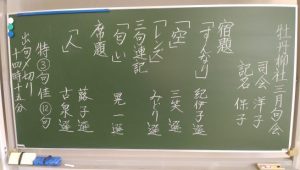 牡丹柳社三月句会
司会 洋子
記名 保子
宿題
「すんなり」 紀伊子選
「空」 三笑選
「レンズ」 みどり選
三句連記
「匂い」 晃一選
席題
「人」 藤子選
古泉選
特③句佳⑫句
出句〆切り
十四時十五分